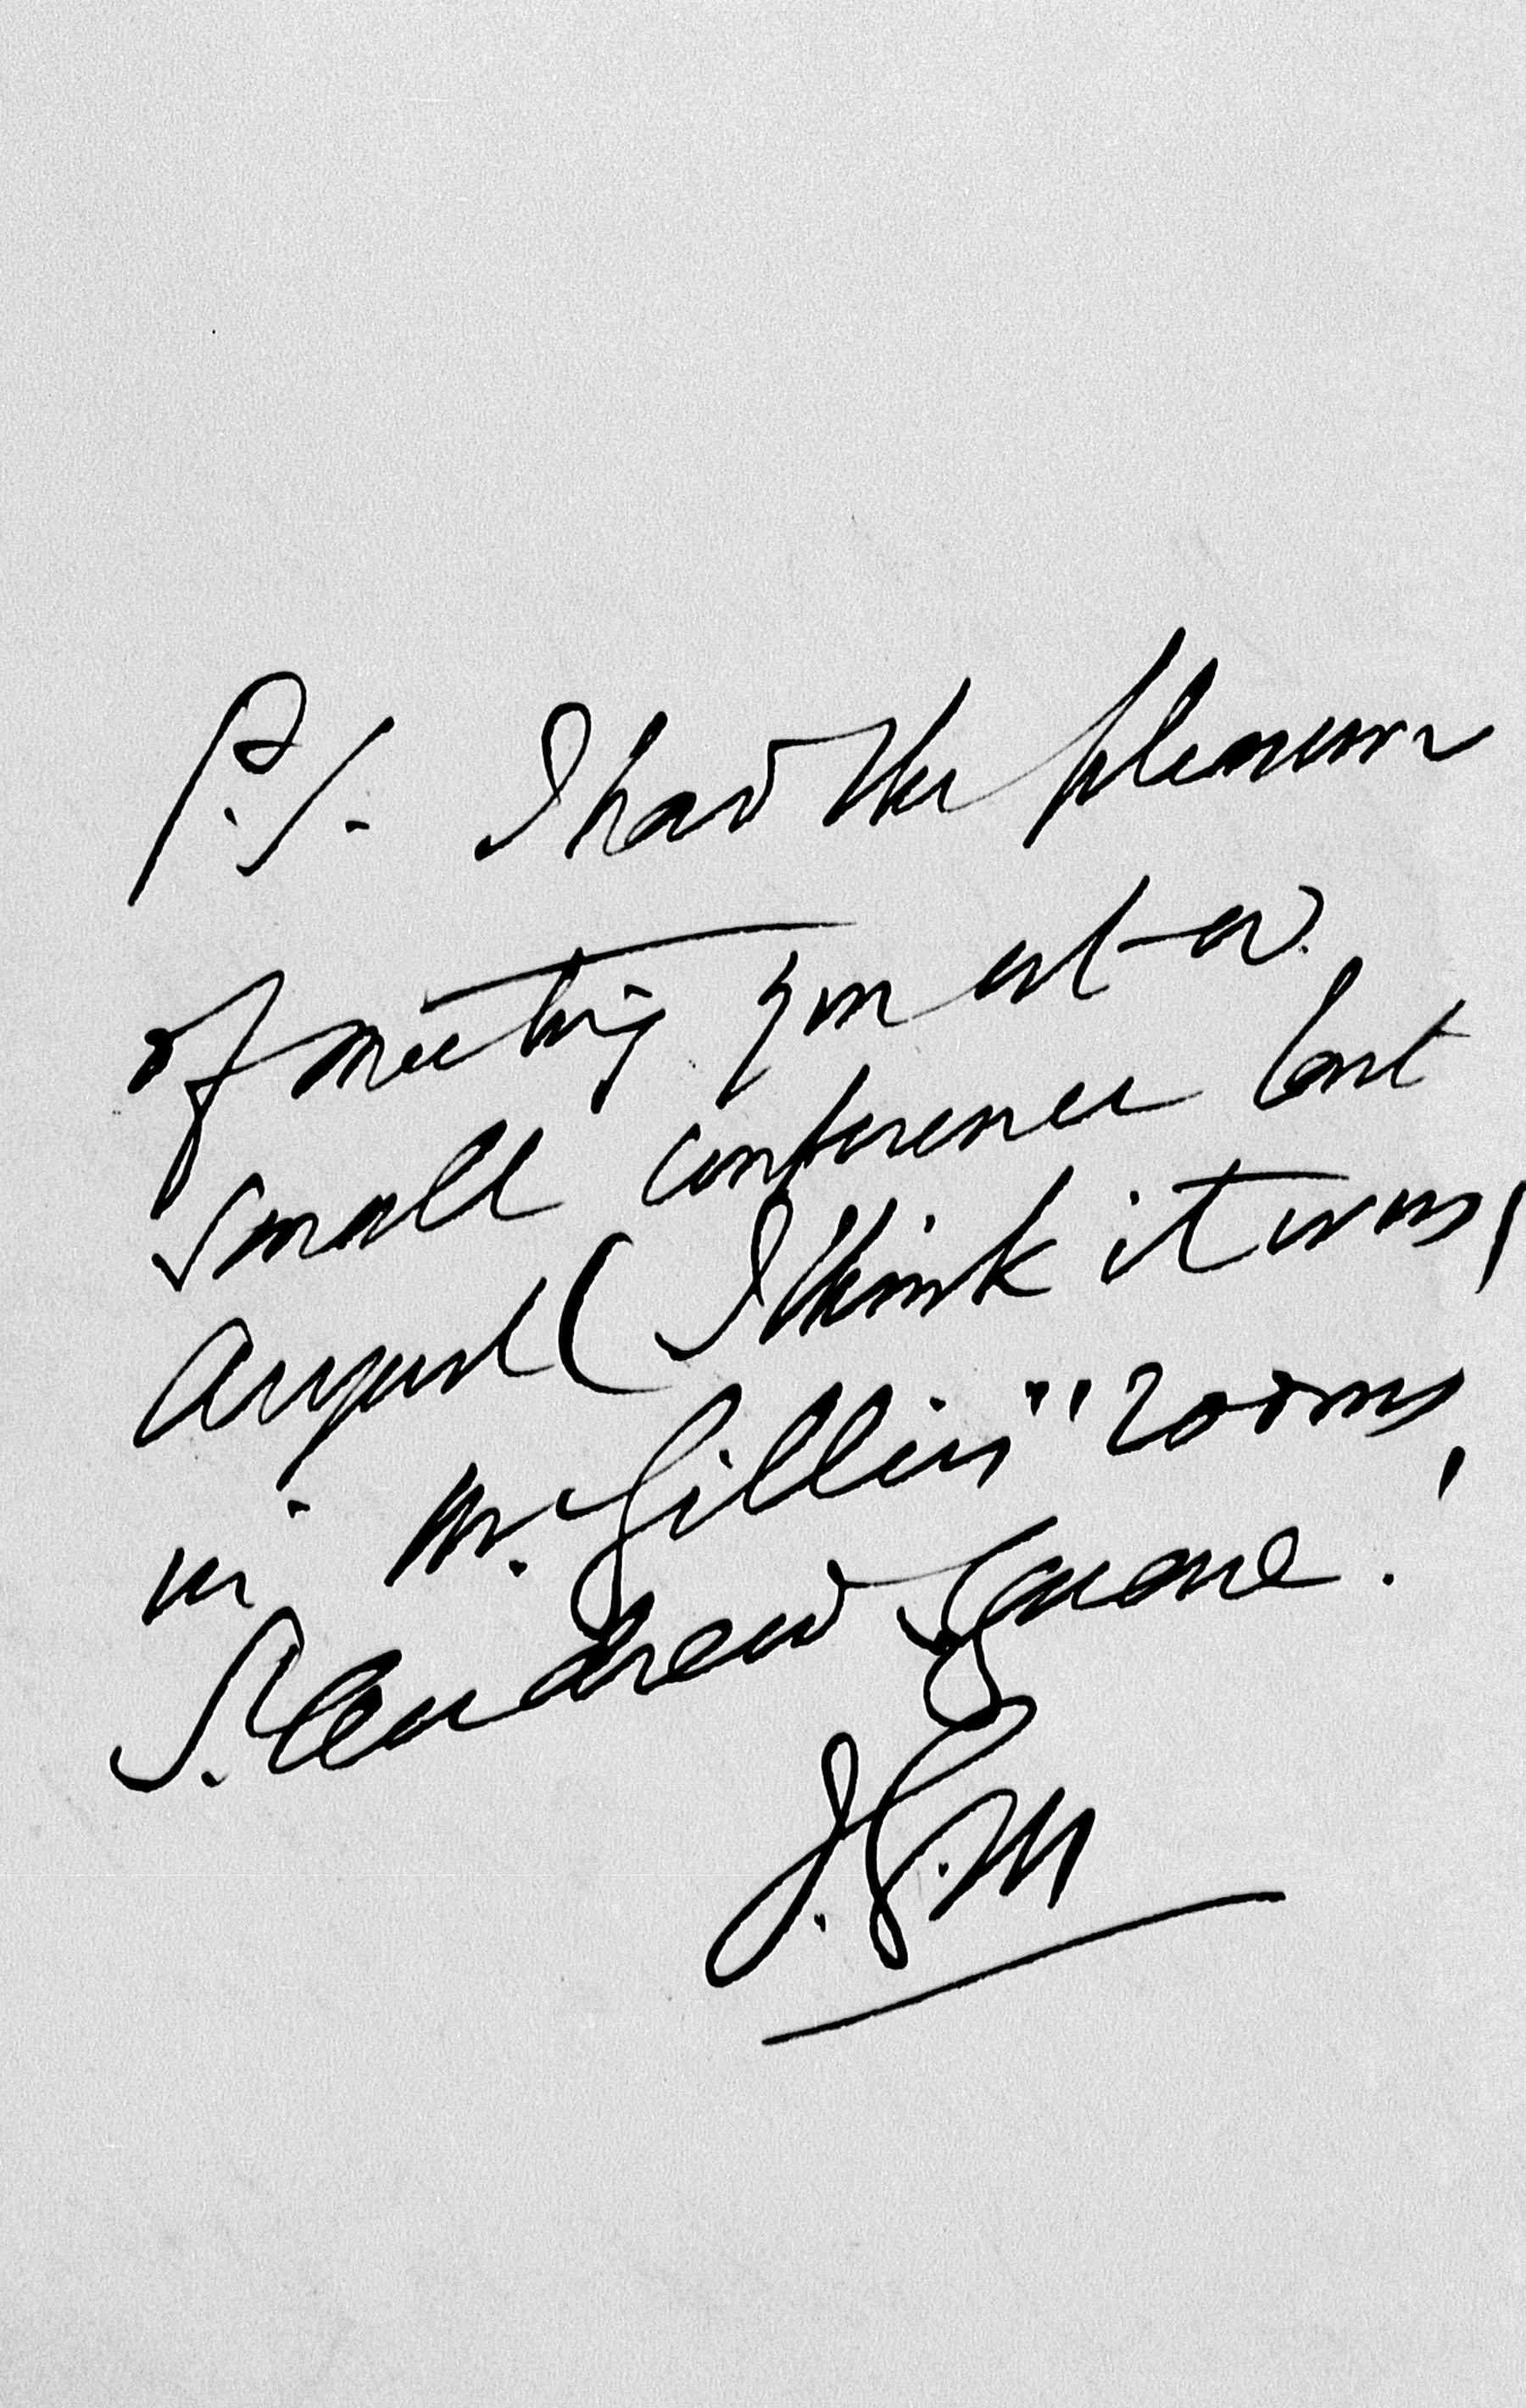 P.S. I had the pleasure
of meeting you at a
small conference last
August (I think it was,
in Mr. Gillies'' rooms,
S. Andrew Square.
J.G.M